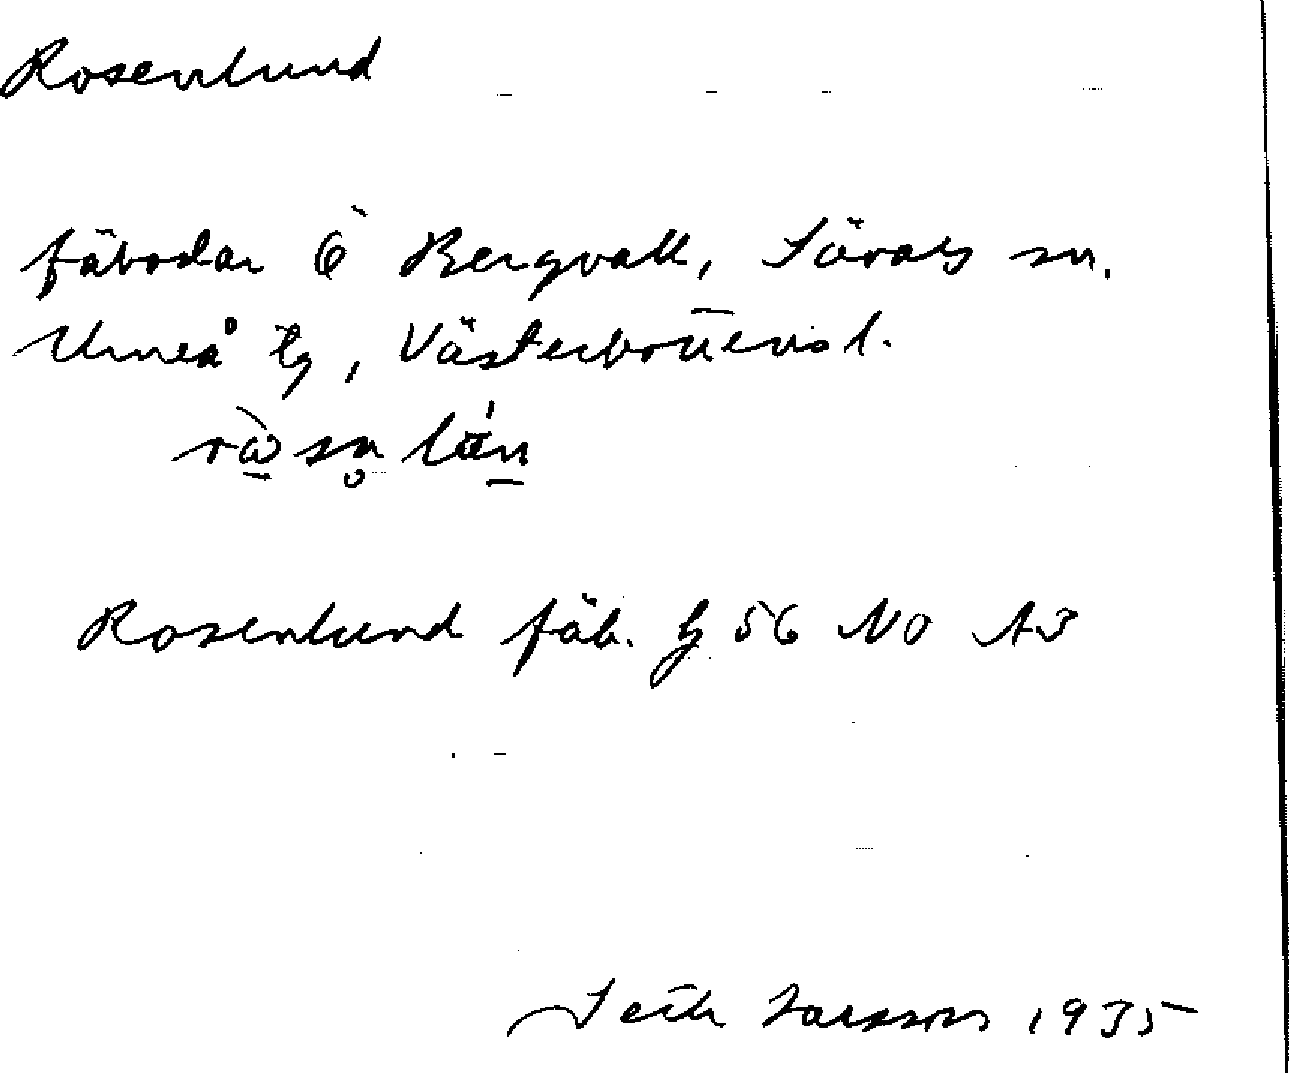 Rosenlund
fäbodar Ö Bergvall, Sävars sn.
Umeå tg, Västerbottens l.
Rosenlund fäb. G 56 NO A3
Seth Larsson 1935